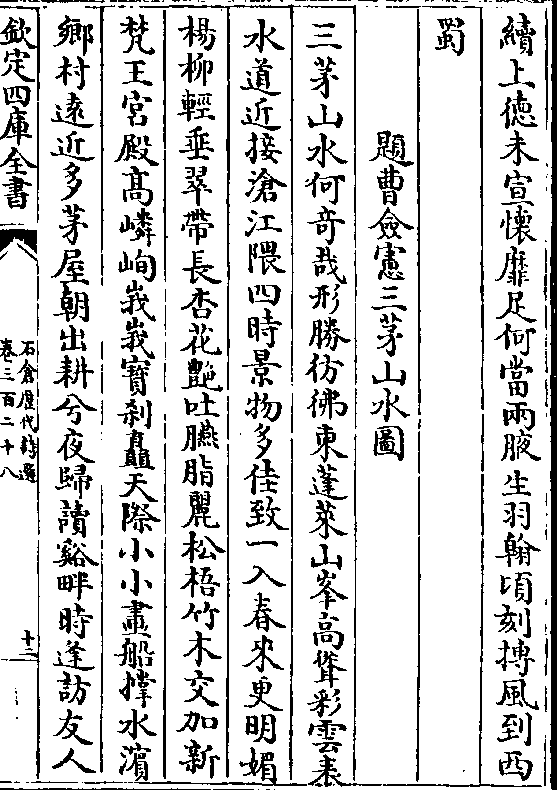 續上徳未宣懷靡足何當兩腋生羽翰頃刻搏風到西
蜀
題曹僉憲三茅山水圖
三茅山水何竒哉形勝彷彿東蓬萊山峯高聳彩雲表
水道近接滄江隈四時景物多佳致一入春來更明媚
楊柳輕垂翠帶長杏花艶吐臙脂麗松梧竹木交加新
梵王宮殿髙嶙峋峩峩寶刹矗天際小小畫船撑水濵
鄉村遠近多茅屋朝出耕兮夜歸讀谿畔時逢訪友人
欽定四庫全書
石倉歴代詩選
卷三百二十八
十二